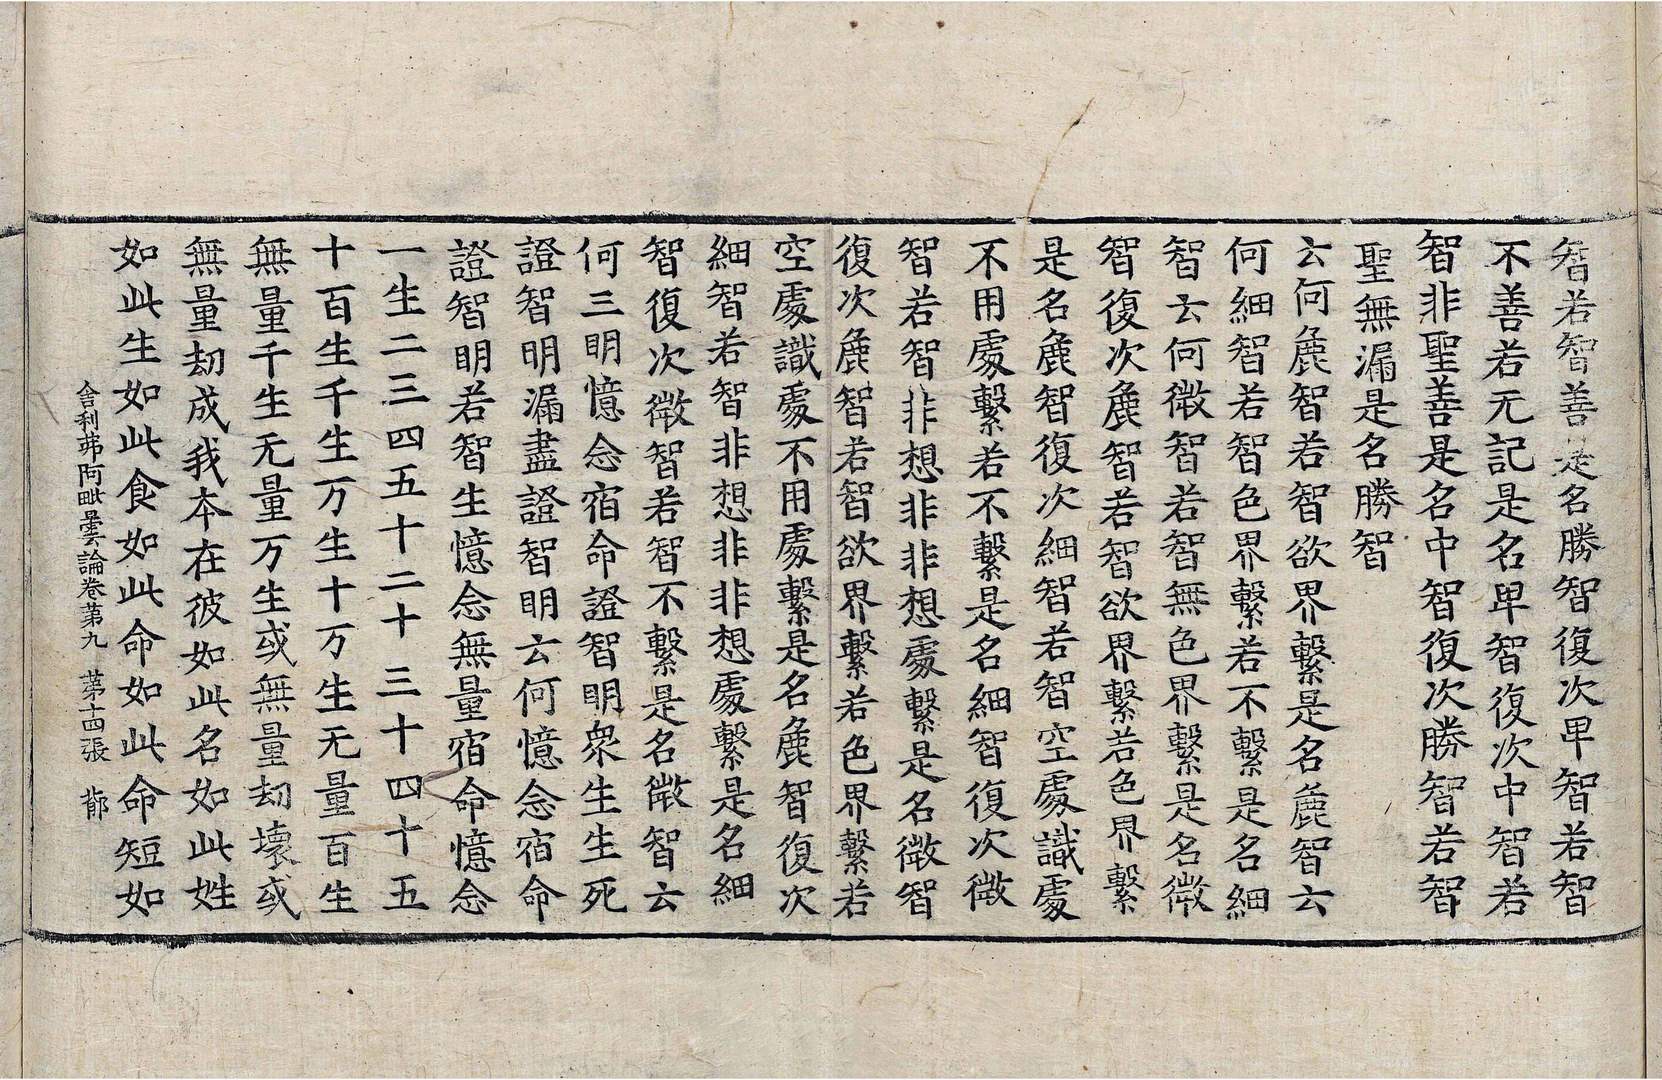 智若智善是名勝智復次卑智若智
不善若无記是名卑智復次中智若
智非聖善是名中智復次勝智若智
聖無漏是名勝智
云何麁智若智欲界繫是名麁智云
何細智若智色界繫若不繫是名細
智云何微智若智無色界繫是名微
智復次麁智若智欲界繫若色界繫
是名麁智復次細智若智空處識處
不用處繫若不繫是名細智復次微
智若智非想非非想處繫是名微智
復次麁智若智欲界繫若色界繫若
空處識處不用處繫是名麁智復次
細智若智非想非非想處繫是名細
智復次微智若智不繫是名微智云
何三明憶念宿命證智明衆生生死
證智明漏盡證智明云何憶念宿命
證智明若智生憶念無量宿命憶念
一生二三四五十二十三十四十五
十百生千生万生十万生无量百生
無量千生无量万生或無量劫壞或
無量劫成我本在彼如此名如此姓
如此生如此食如此命如此命短如
舍利弗阿毗曇論卷第九　第十四張　郁